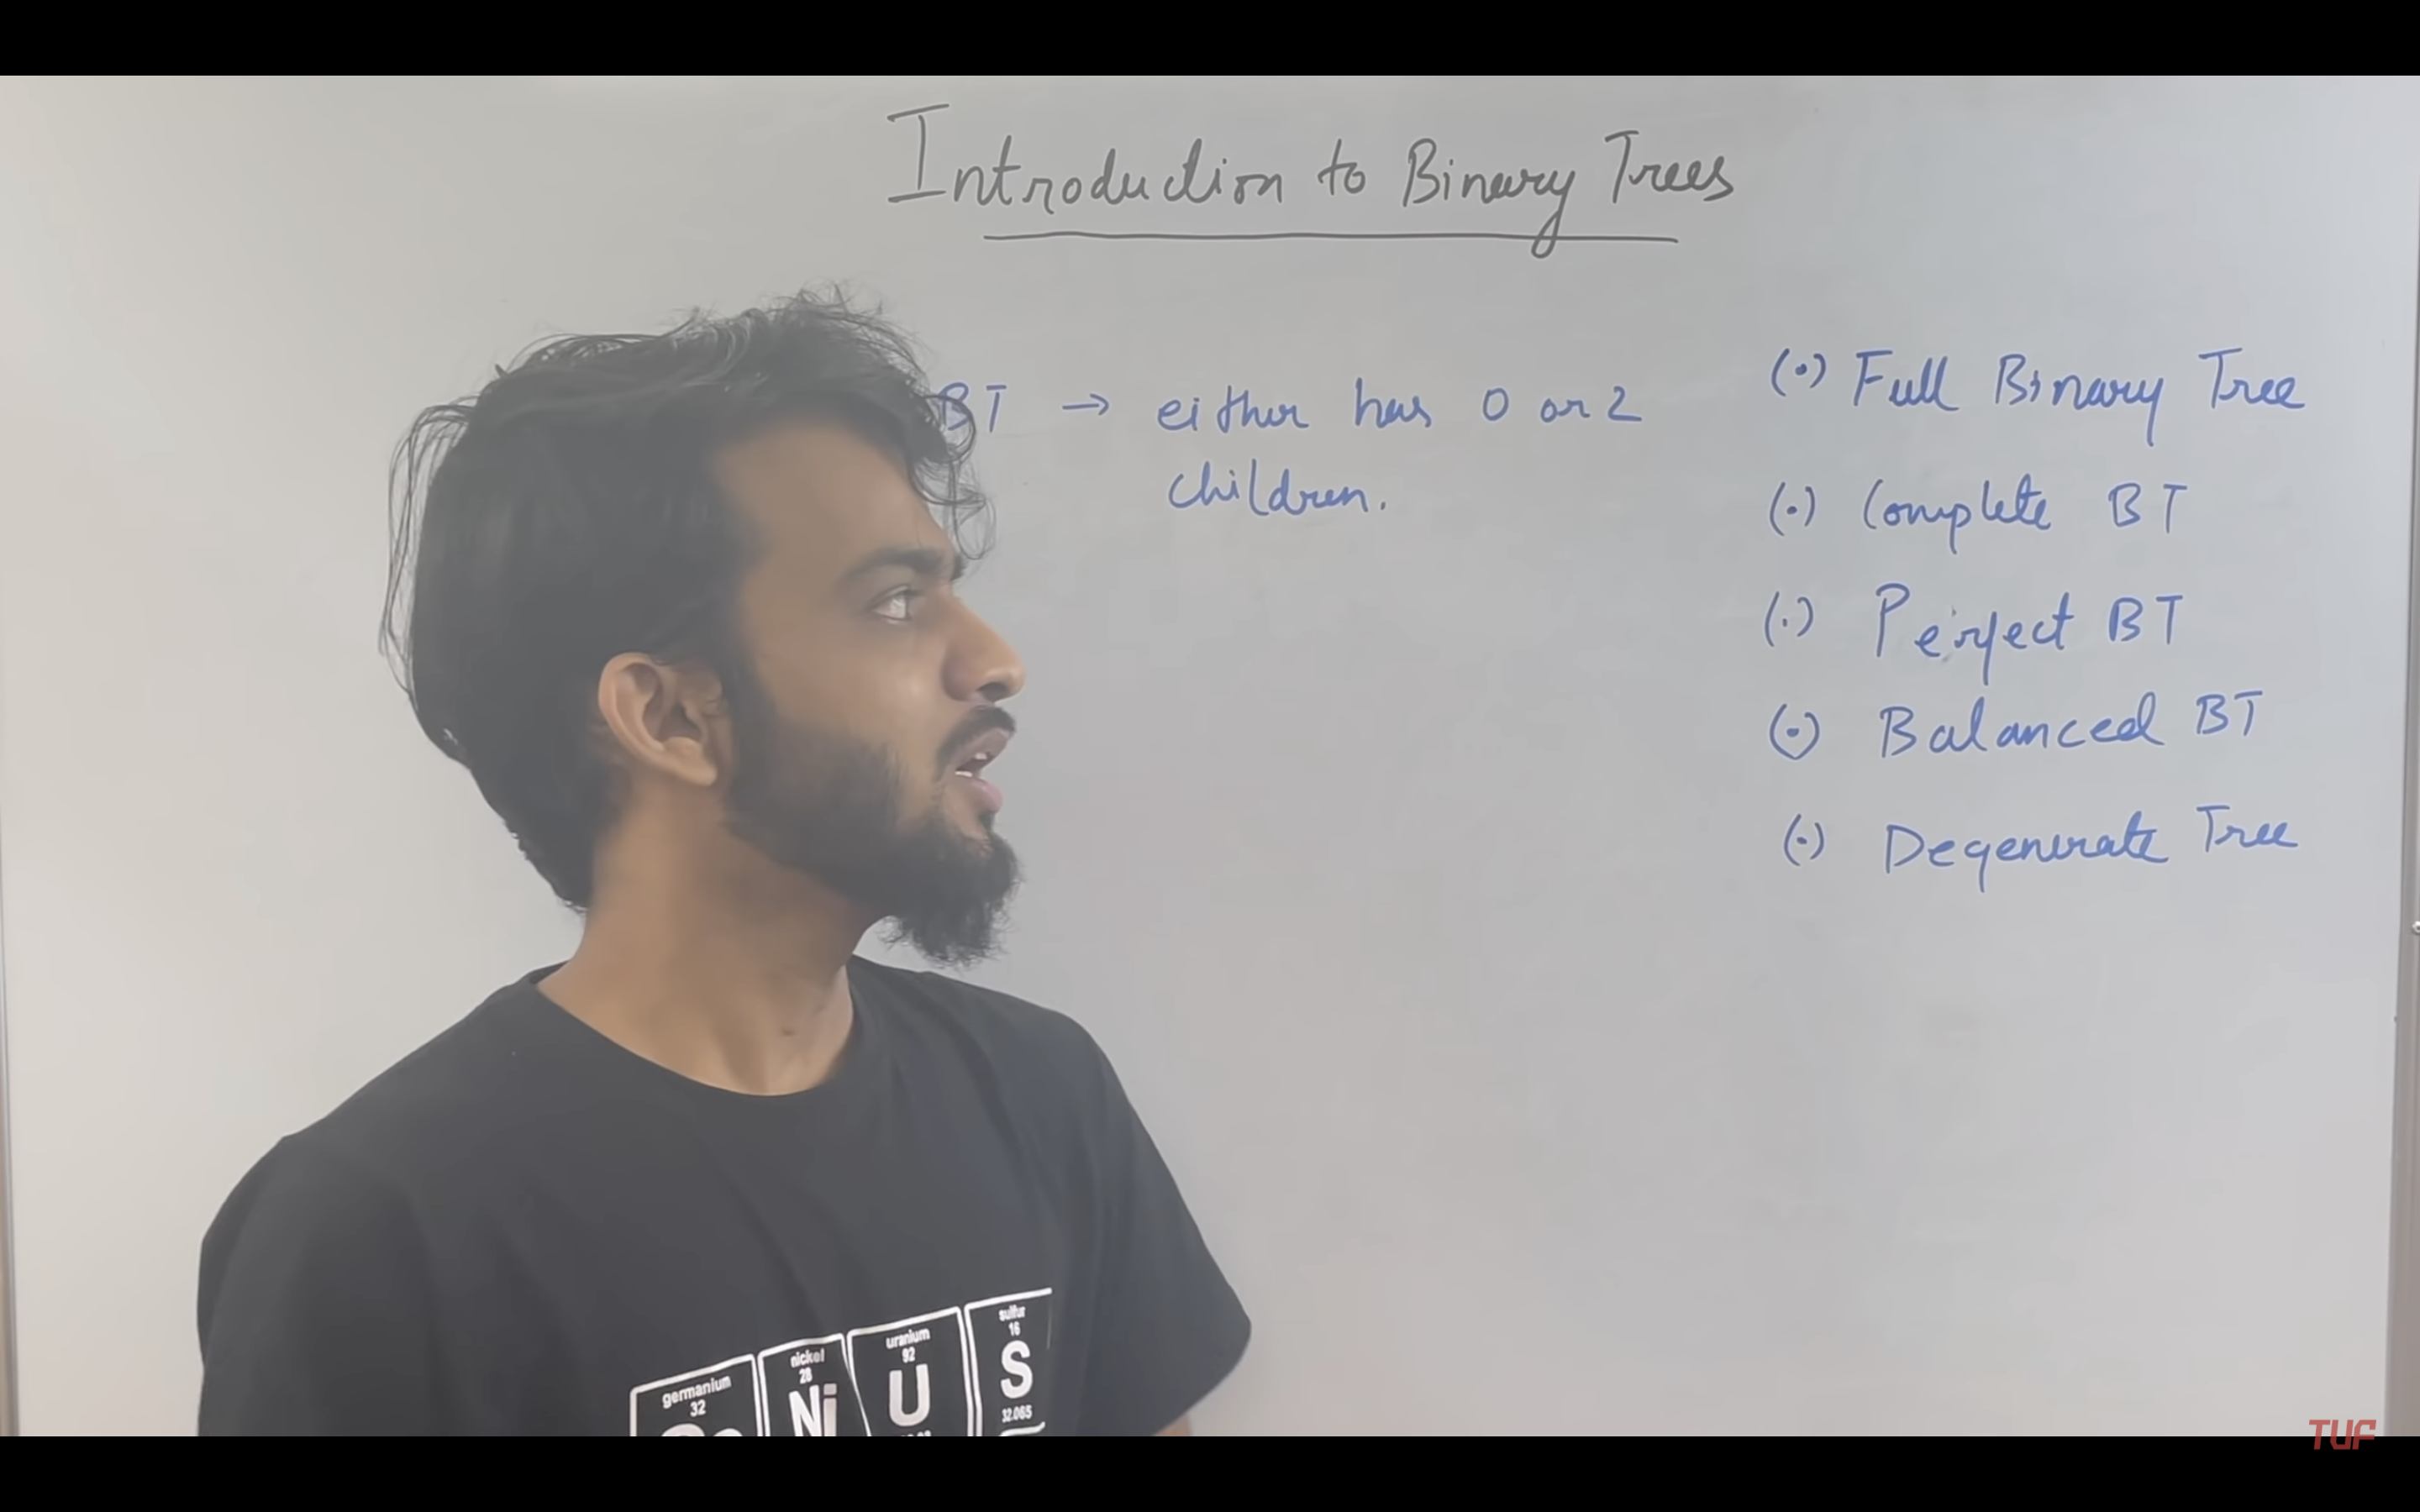 Introduction to Binary Trees
BT → either has 0 or 2
children.
(•) Full Binary Tree
(•) Complete BT
(•) Perfect BT
(•) Balanced BT
(•) Degenerate Tree
germanium
32
nickel
28
Ni
uranium
92
U
sulfur
16
S
32.065
TUF